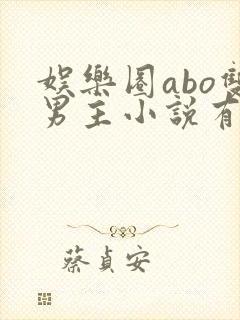 娛樂圈abo雙
男主小說有
蔡貞安